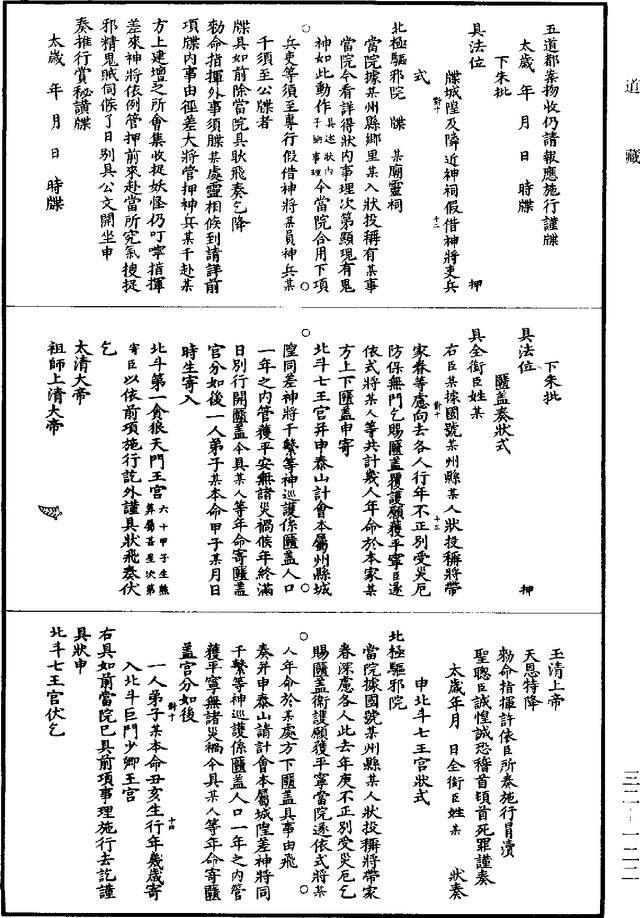 道藏
五道都案物收仍請報應施行謹牒
太歲　年　月　日　時牒
下朱批
具法位　押
牒城隍及隣近神祠假借神將吏兵
式
北極驅邪院　牒　某廟靈祠
當院據某州縣鄉里某入狀投稱有某事
當院今看詳得狀內事理次第顯現有鬼
神如此動作具述狀內子納事理今當院合用下項
兵吏等須至專行假借神將某員神兵某
千須至公牒者
牒具如前除當院具狀飛奏乞降
勑命指揮外事須牒某處靈相候到請詳前
項牒內事由徑差大將管押神兵某千赴某
方上建壇之所會集收捉妖怪仍叮嚀指揮
差來神將依例管押前來赴當所究氣搜捉
邪精鬼賊伺候了日別具公文開坐申
奏推行賞秘讀牒
太歲　年　月　日　時牒
下朱批
具法位　押
匾蓋奏狀式
具全銜臣姓某
右臣某據國號某州縣某人狀投稱將帶
家眷等慮向去各人行年不正別受災厄
防保無門乞賜匾蓋覆護願獲平寧臣遂
依式將某人等共計幾人年命於本家某
方上下匾蓋申寄
北斗七王官并申泰山計會本屬州縣城
隍同差神將千繫等神巡護係匾蓋人口
一年之內管獲平安無諸災禍候年終滿
日別行開匾蓋今具某人等年命寄匾蓋
官分如後一人弟子某本命甲子某月日
時生寄入
北斗第一貪狼天門王宮六十甲子生熊算屬甚星次第
寄臣以依前項施行訖外謹具狀飛奏伏
乞
太清大帝
祖師上清大帝
玉清上帝
天恩特降
勑命指揮許依臣所奏施行冒瀆
聖聰臣誠惶誠恐稽首頓首死罪謹奏
太歲年月　日全銜臣姓某　狀奏
申北斗七王官狀式
北極驅邪院
當院據國號某州縣某人狀投稱將帶家
眷深慮各人此去年庚不正別受災厄乞
賜匾蓋衛護願獲平寧當院遂依式將某
人年命於某處方下匾蓋具事由飛
奏并申泰山請計會本屬城隍差神將同
千繫等神巡護係匾蓋人口一年之內管
獲平寧無諸災禍今具某人等年命寄匾
蓋官分如後
一人弟子某本命丑亥生行年幾歲寄
入北斗巨門少卿王宮
右具如前當院已具前項事理施行去訖謹
具狀申
北斗七王官伏乞
三二—一二二